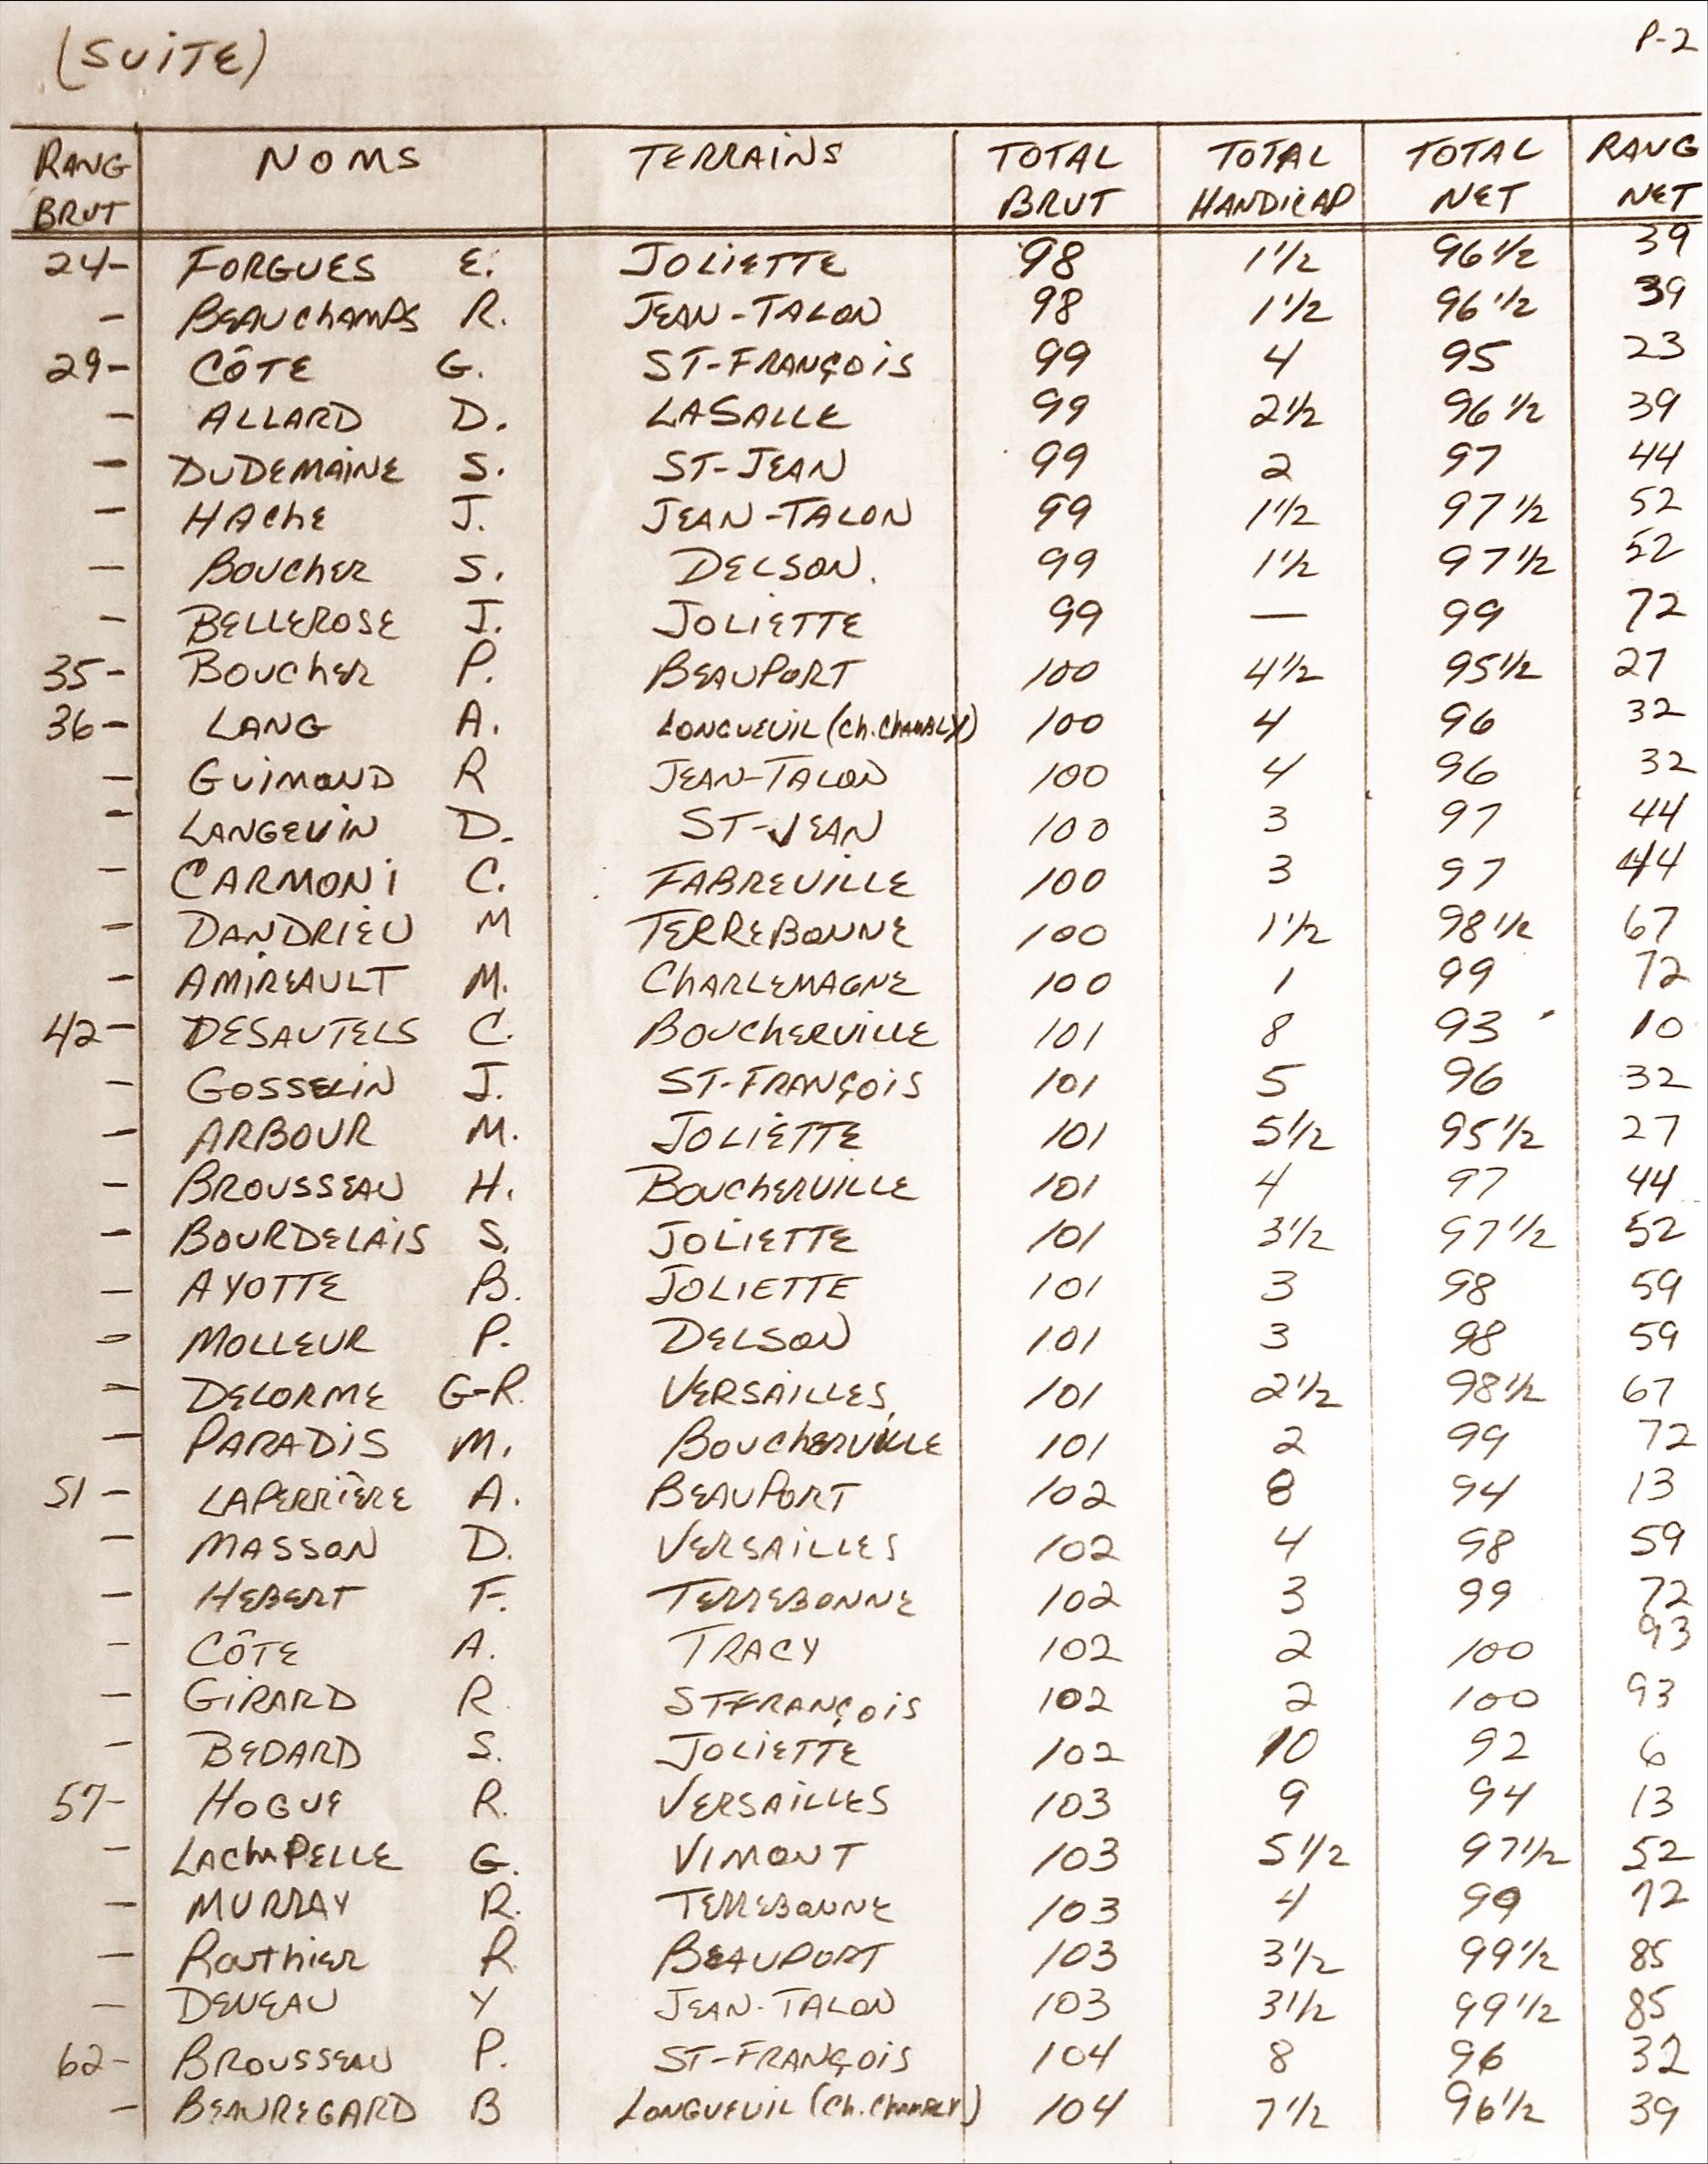 (SUITE) P-2
RANG BRUT NOMS TERRAINS TOTAL BRUT TOTAL HANDICAP TOTAL NET RANG NET
24- FORGUES E. JOLIETTE 98 1 1/2 96 1/2 39
- BEAUCHAMPS R. JEAN-TALON 98 1 1/2 96 1/2 39
29- CÔTE G. ST-FRANÇOIS 99 4 95 23
- ALLARD D. LASALLE 99 2 1/2 96 1/2 39
- DUDEMAINE S. ST-JEAN 99 2 97 44
- HACHE J. JEAN-TALON 99 1 1/2 97 1/2 52
- BOUCHER S. DELSON. 99 1 1/2 97 1/2 52
- BELLEROSE J. JOLIETTE 99 — 99 72
35- BOUCHER P. BEAUPORT 100 4 1/2 95 1/2 27
36- LANG A. LONGUEUIL (Ch. CHAMBLY) 100 4 96 32
- GUIMOND R JEAN-TALON 100 4 96 32
- LANGEVIN D. ST-JEAN 100 3 97 44
- CARMONI C. FABREVILLE 100 3 97 44
- DANDRIEU M TERREBONNE 100 1 1/2 98 1/2 67
- AMIREAULT M. CHARLEMAGNE 100 1 99 72
42- DESAUTELS C. BOUCHERVILLE 101 8 93 10
- GOSSELIN J. ST-FRANÇOIS 101 5 96 32
- ARBOUR M. JOLIETTE 101 5 1/2 95 1/2 27
- BROUSSEAU H. BOUCHERVILLE 101 4 97 44
- BOURDELAIS S. JOLIETTE 101 3 1/2 97 1/2 52
- AYOTTE B. JOLIETTE 101 3 98 59
- MOLLEUR P. DELSON 101 3 98 59
- DELORME G-R. VERSAILLES 101 2 1/2 98 1/2 67
- PARADIS M. BOUCHERVILLE 101 2 99 72
51- LAPERRIÈRE A. BEAUPORT 102 8 94 13
- MASSON D. VERSAILLES 102 4 98 59
- HEBERT F. TERREBONNE 102 3 99 72
- CÔTE A. TRACY 102 2 100 93
- GIRARD R ST-FRANÇOIS 102 2 100 93
- BEDARD S. JOLIETTE 102 10 92 6
57- HOGUE R. VERSAILLES 103 9 94 13
- LACHAPELLE G. VIMONT 103 5 1/2 97 1/2 52
- MURRAY R. TERREBONNE 103 4 99 72
- Routhier R BEAUPORT 103 3 1/2 99 1/2 85
- DENEAU Y JEAN-TALON 103 3 1/2 99 1/2 85
62- BROUSSEAU P. ST-FRANÇOIS 104 8 96 32
- BEAUREGARD B LONGUEUIL (Ch. CHAMBLY) 104 7 1/2 96 1/2 39